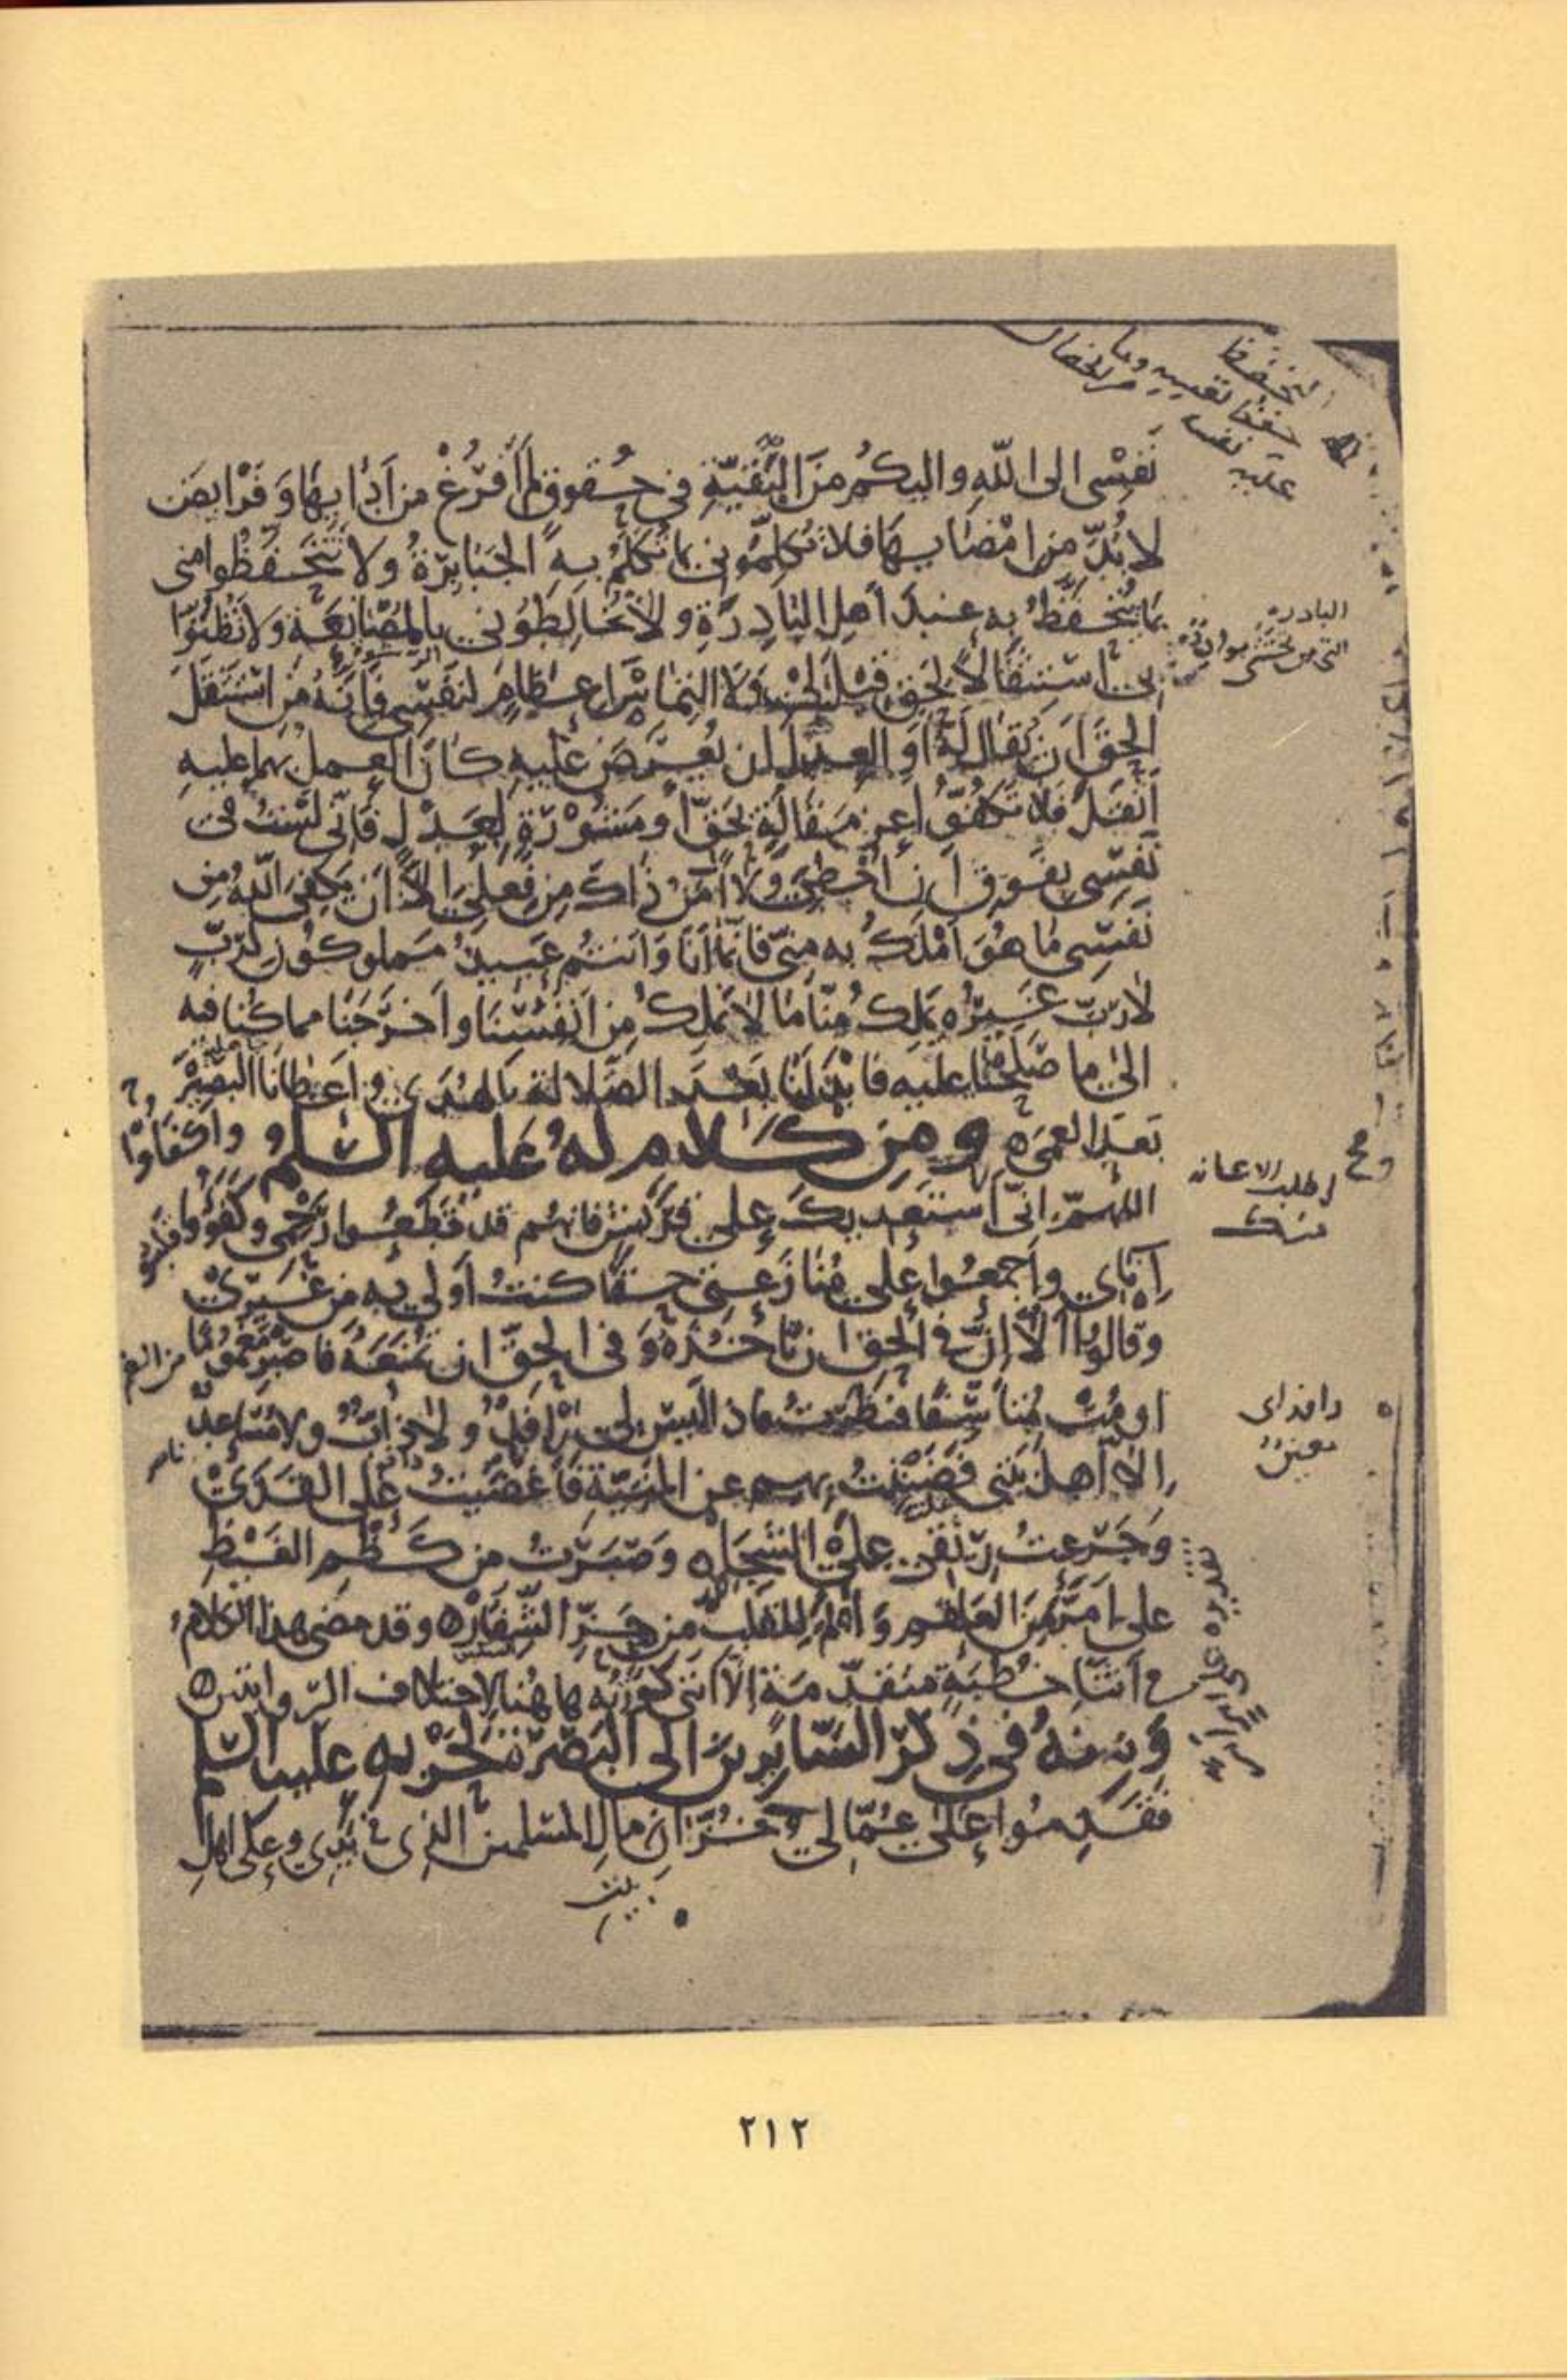 نَفْسِى الى اللّهِ واليكُمْ مِنَ البَقيّةِ فى حُقوقٍ لم أَفرُغْ من أَدَائِهَا وَفَرايضَ
لا بُدَّ من امْضَايهَا فلا تُكلِّمُونى بما تُكلَّمُ بهِ الجَبَابِرَةُ ولا تَتَحَفَّظُوا منى
بمَا يُتَحفَّظُ به عندَ أهلِ البَادِرَةِ ولا تُخَالِطُونى بالمُصَانَعَةِ ولا تَظُنُّوا
بى استثقَالاً لحقٍ قيلَ لى ولا التماسَ اعظامٍ لنَفْسِى فانّهُ مَن استثقلَ
الحقَّ ان يُقالَ لهُ اَوِ العدلَ ان يُعرَضَ عليهِ كانَ العملُ بهما عليهِ
اثقلَ فلا تكفّوا عن مقالةٍ بحقٍّ او مَشْوَرَةٍ بعدلٍ فانّى لستُ فى
نَفْسِى بفوقِ أن أُخطِئَ ولا آمنُ ذاكَ مِن فِعلى الّا أن يكفىَ اللّهُ من
نَفْسِى مَا هُوَ أَمْلَكُ به منّى فانّما أنَا وَأنتُم عَبيدٌ مملوكُونَ لرَبٍّ
لا ربَّ غيرُهُ يَملِكُ مِنّا مَا لا نَملِكُ مِن أنفُسِنَا وأخرَجَنا مما كُنا فيه
الى ما صَلَحنَا عليه فابْدَلَنَا بَعدَ الضَّلالة بالهُدى واعطانا البَصيرةَ
بَعدَ العمى ومِن كَلام لهُ عَليه السّلم واكفَاوا
اللّهمّ انّى استَعديكَ على قُرَيشٍ فانهُم قد قَطَعُوا رَحِمى وكفَؤُوا
اِنَائى واَجمعُوا على مُنَازَعتى حقًا كنتُ أولى به من غَيرى
وقالوا أَلا اِنَّ فى الحقِّ ان تأخُذَهُ وَفى الحقِّ ان تُمنَعَهُ فاصبِر مَغمُومًا من الغم
او مُت مُتأَسِّفًا فنظَرتُ فاذا ليسَ لى رَافِدٌ ولا ذابٌّ ولا مُسَاعدٌ
اِلّا أهلَ بيتى فضَنَنتُ بهِم عن المنيّةِ فأَغضَيتُ على القَذى
وَجَرِعتُ رِيقى على الشّجا وَصَبَرتُ من كَظْمِ الغَيظِ
على أمَرَّ مِنَ العلقَمِ وَآلمَ للقلبِ من حَزِّ الشِّفَارِ وقد مضى هذا الكلامُ
فى أثنَاءِ خُطبَةٍ متقدّمةٍ الّا أنّى كَرَّرتُه هاهُنا لاختلاف الرّوايتين
وَمِنهُ فى ذِكرِ السَّايِرينَ الى البَصرَةِ لحَرْبِهِ عليه السّلم
فَقَدِمُوا عَلى عُمّالى وخُزَّانِ مالِ المسلمينَ الذى فى يَدى وعلى اهلِ
البادره
اطلب الاعانه
منك
رافداى
معين
ناصر
٢١٢